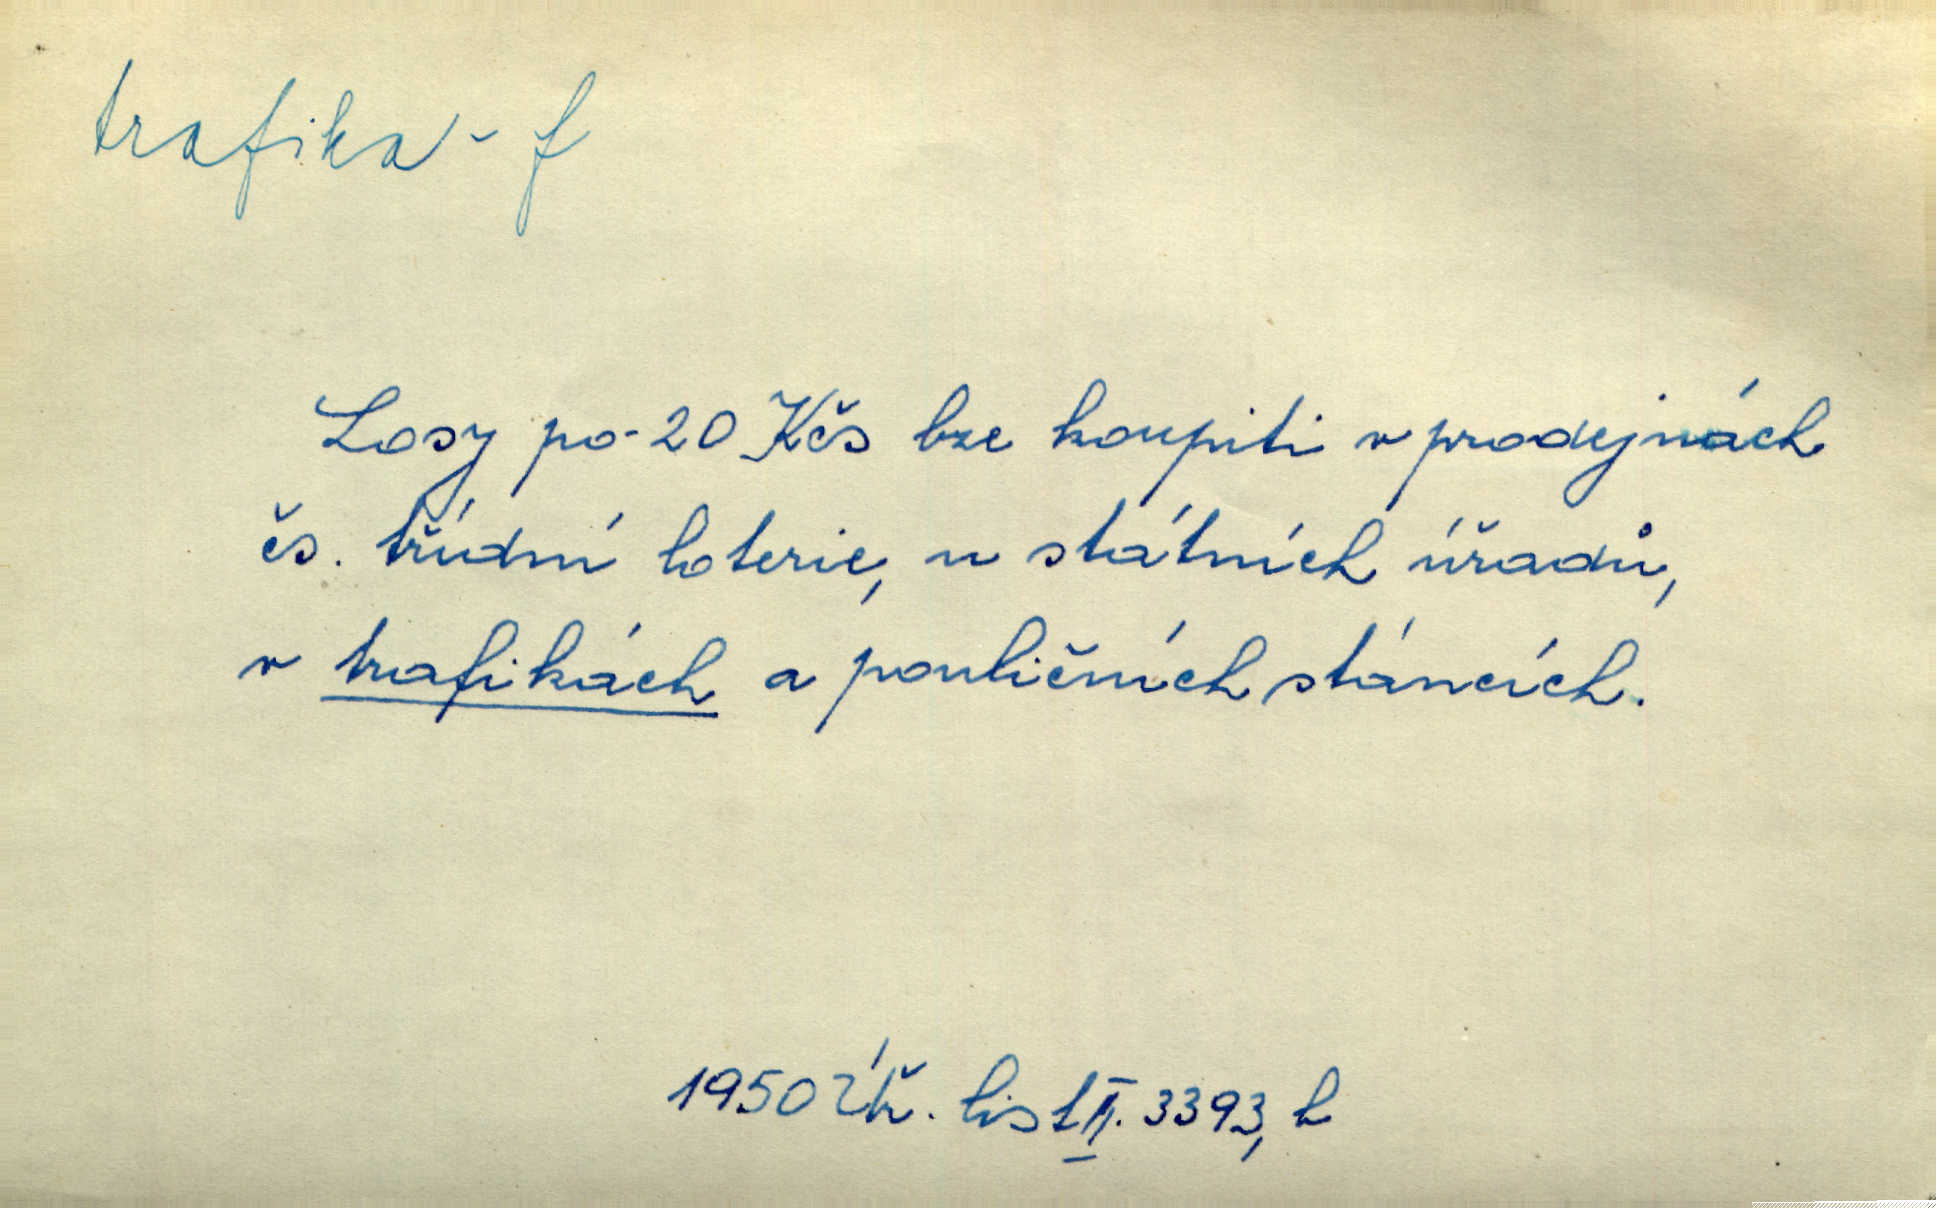 trafika - f
Losy po 20 Kčs lze koupiti v prodejnách
čs. třídní loterie, u státních úřadů,
v trafikách a pouličních stáncích.
1950 Úř. list II. 3393, b